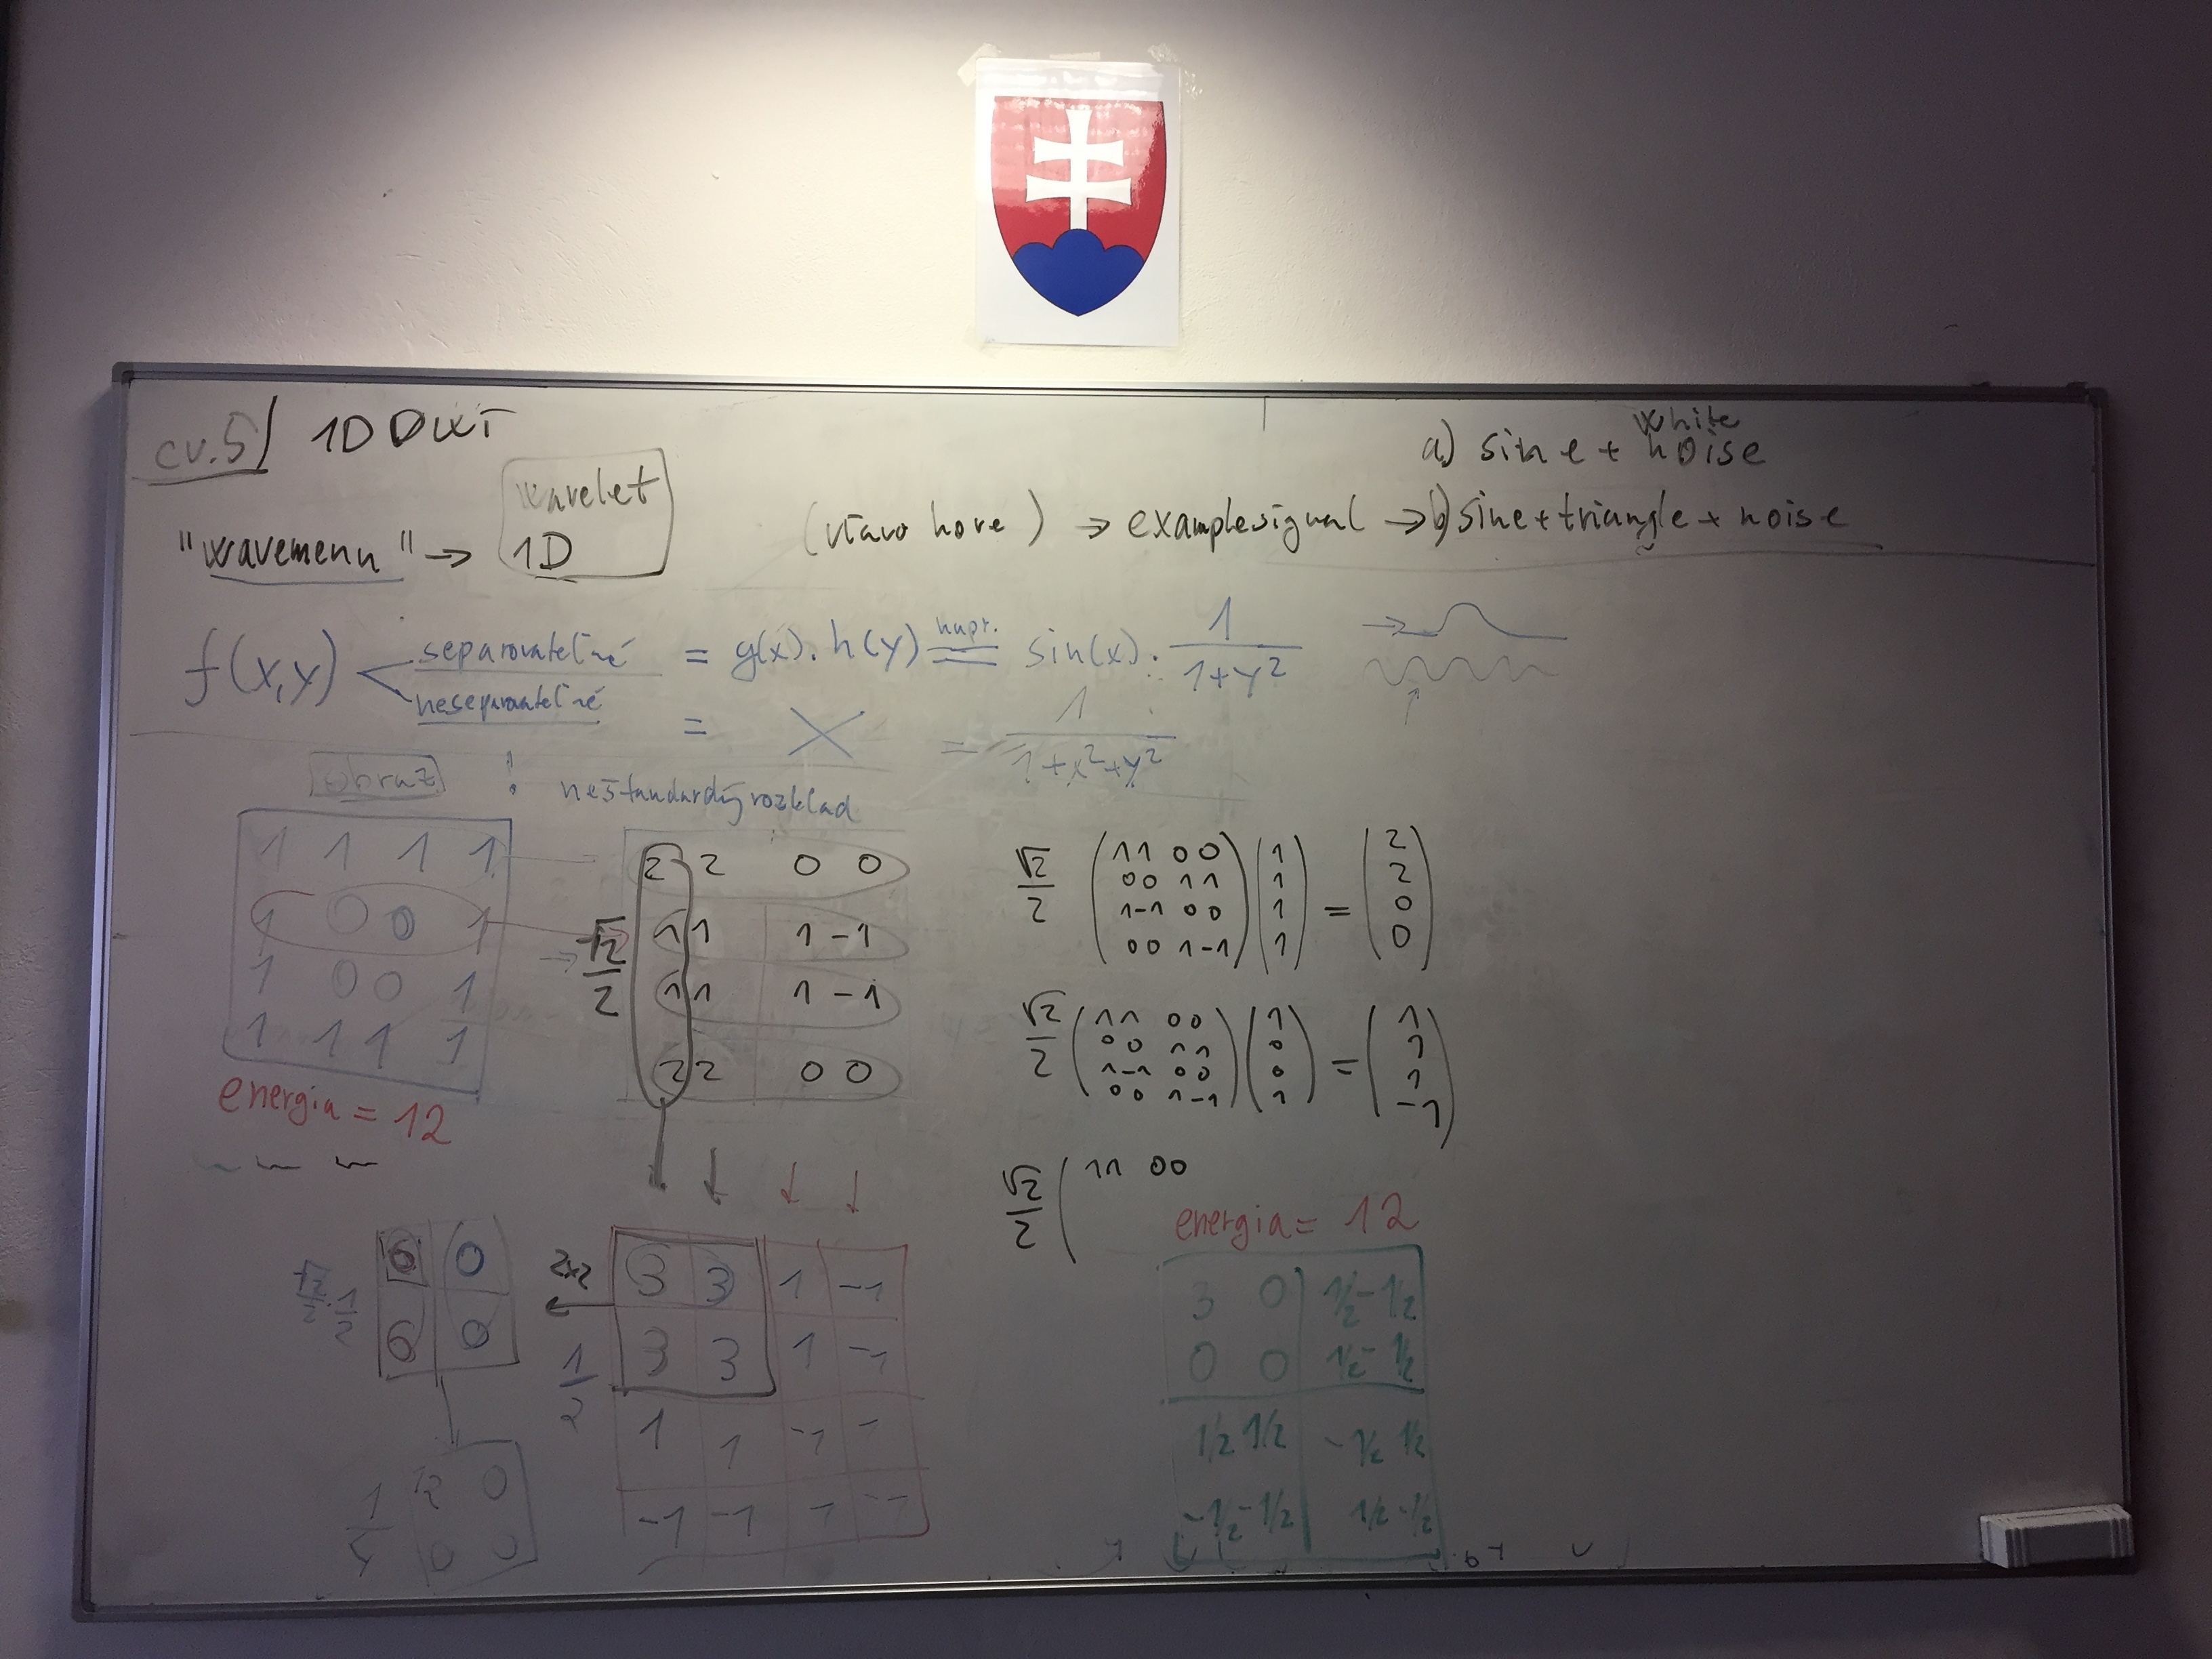 cv.5/ 1D DWT
a) sine + white noise
"wavemenu" → wavelet 1D
(vľavo hore) → example signal → b) sine + triangle + noise
f(x,y)
separovateľné = g(x).h(y) napr. = sin(x) . 1/(1+y²)
neseparovateľné = X = 1/(1+x²+y²)
obraz ! neštandardný rozklad
1 1 1 1
1 0 0 1
1 0 0 1
1 1 1 1
energia = 12
√2/2
2 2 0 0
1 1 1 -1
1 1 1 -1
2 2 0 0
√2/2 (1 1 0 0
0 0 1 1
1 -1 0 0
0 0 1 -1) (1 1 1 1) = (2 2 0 0)
√2/2 (1 1 0 0
0 0 1 1
1 -1 0 0
0 0 1 -1) (1 0 0 1) = (1 1 1 -1)
√2/2 ( 1 1 0 0
√2/2 . 1/2
6 0
6 0
2x2
1/2
3 3 1 -1
3 3 1 -1
1 1 -1
-1 -1
energia = 12
3 0 1/2 -1/2
0 0 1/2 -1/2
1/2 1/2 -1/2 1/2
-1/2 -1/2 1/2 -1/2